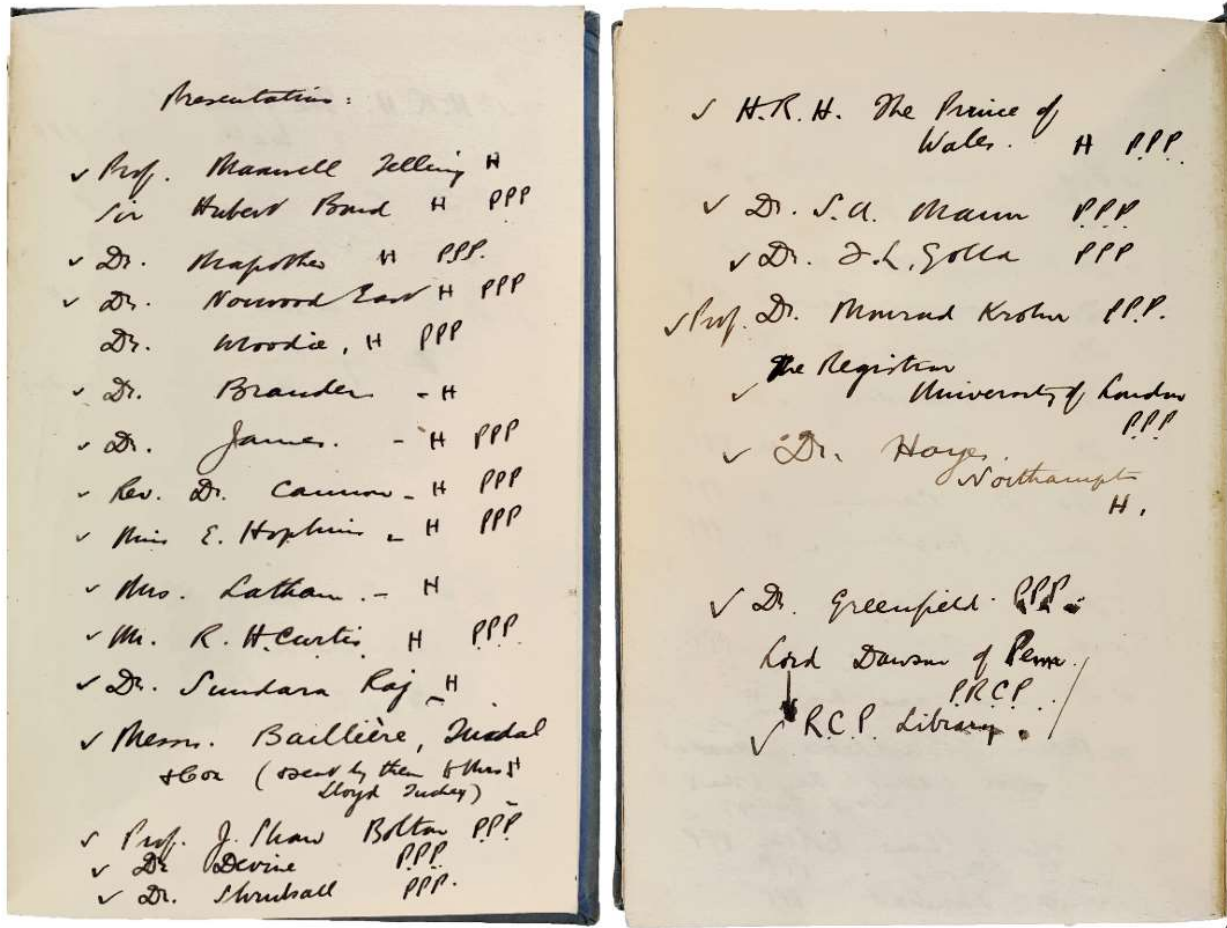 Presentation:
✓ Prof. Maxwell Telling H
Sir Hubert Bond H PPP
✓ Dr. Mapother H PPP.
✓ Dr. Norwood East H PPP
Dr. Moodie, H PPP
✓ Dr. Brander - H
✓ Dr. James. - H PPP
✓ Rev. Dr. Cannon - H PPP
✓ Miss E. Hopkins - H PPP
✓ Mrs. Latham. - H
✓ Mr. R. H. Curtis H PPP.
✓ Dr. Sundara Raj - H
✓ Messrs. Baillière, Tindal
& Cox ( sent by them to Mrs
Lloyd Tuckey)
✓ Prof. J. Shaw Bolton PPP
✓ Dr Devine PPP.
✓ Dr. Shrubsall PPP.
✓ H.R.H. The Prince of
Wales. H P.P.P.
✓ Dr. S.A. Mann P.P.P.
✓ Dr. F.L. Golla PPP
✓ Prof. Dr. Monrad Krohn P.P.P.
The Registrar
✓ University of London
P.P.P
✓ Dr. Hayes.
Northampt
H.
✓ Dr. Greenfield. P.P.P.
Lord Dawson of Penn.
P.R.C.P.
✓ R.C.P. Library.